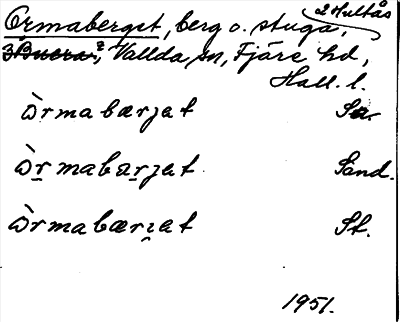 Ormaberget, berg o. stuga, 2 Hultås
3 Buera?, Vallda sn, Fjäre hd,
Hall. l.
ò̀rmabærjət Sa.
ò̀rmabærjət Sand.
ò̀rmabærjət St.
1951.